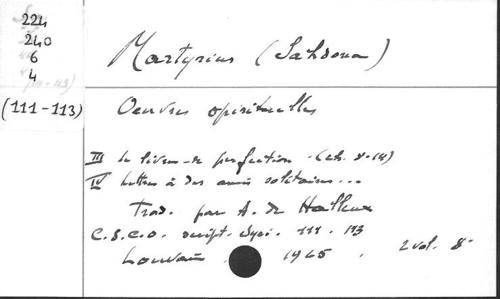 224
240
6
4
(111-113)
Martyrius (Sahdona)
Oeuvres spirituelles
III Le livre de perfection. (ch. 8-14)
IV Lettres à des amis solitaires...
Trad. par A. de Halleux
C.S.C.O. script. Syri. 111. 113
Louvain. 1965. 2 vol. 8°